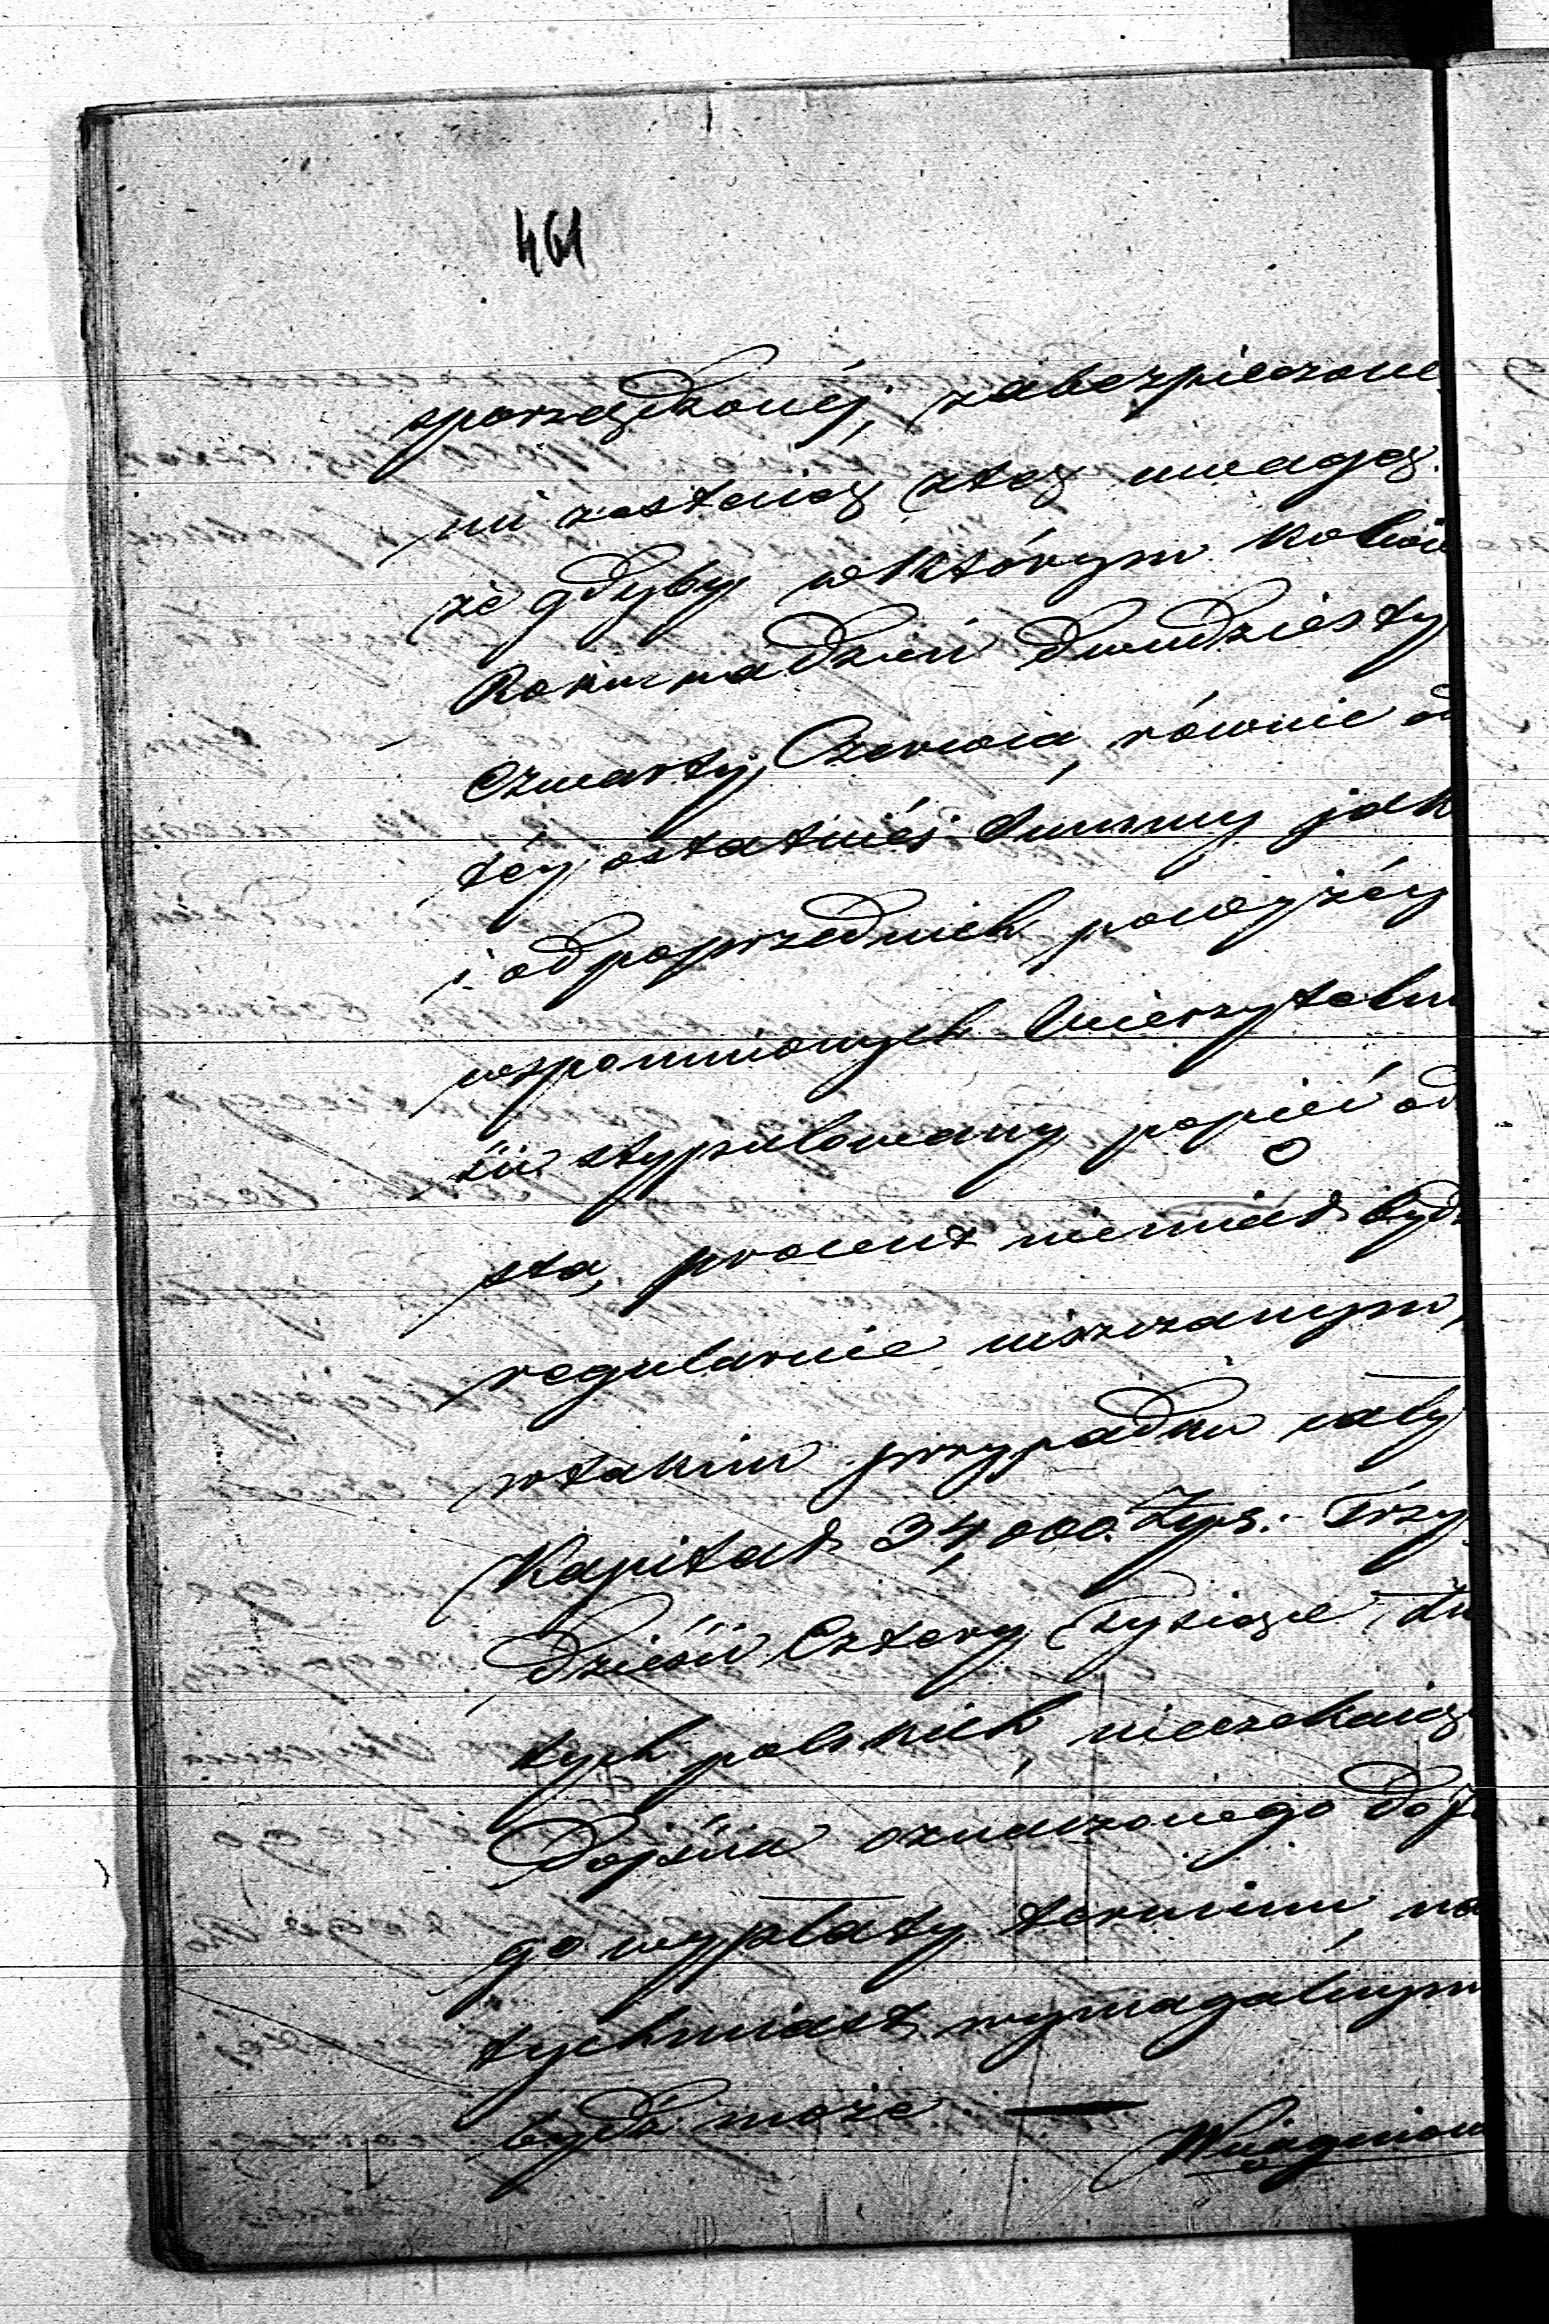 461
sporządzonéj, zabezpieczone
mi zostaią z tą uwagą
że gdyby w którym kolwie
Roku na dzień dwudziesty
czwarty Czerwca, równie od
téy ostatniéi summy jak
i od poprzednich powyżéy
wspomnionych Wierzytelno
ści stypulowany po pięć od
sta, procent niemiał bydź
regularnie uiszczanym,
w takim przypadku cały
Kapitał 34,000. Złps.- Trzy
dzieści Cztery Tysiące Zło
tych polskich, nieczekaiąc
dojścia oznaczonego do je
go wypłaty terminu, na
tychmiast wymagalnym
bydź może —